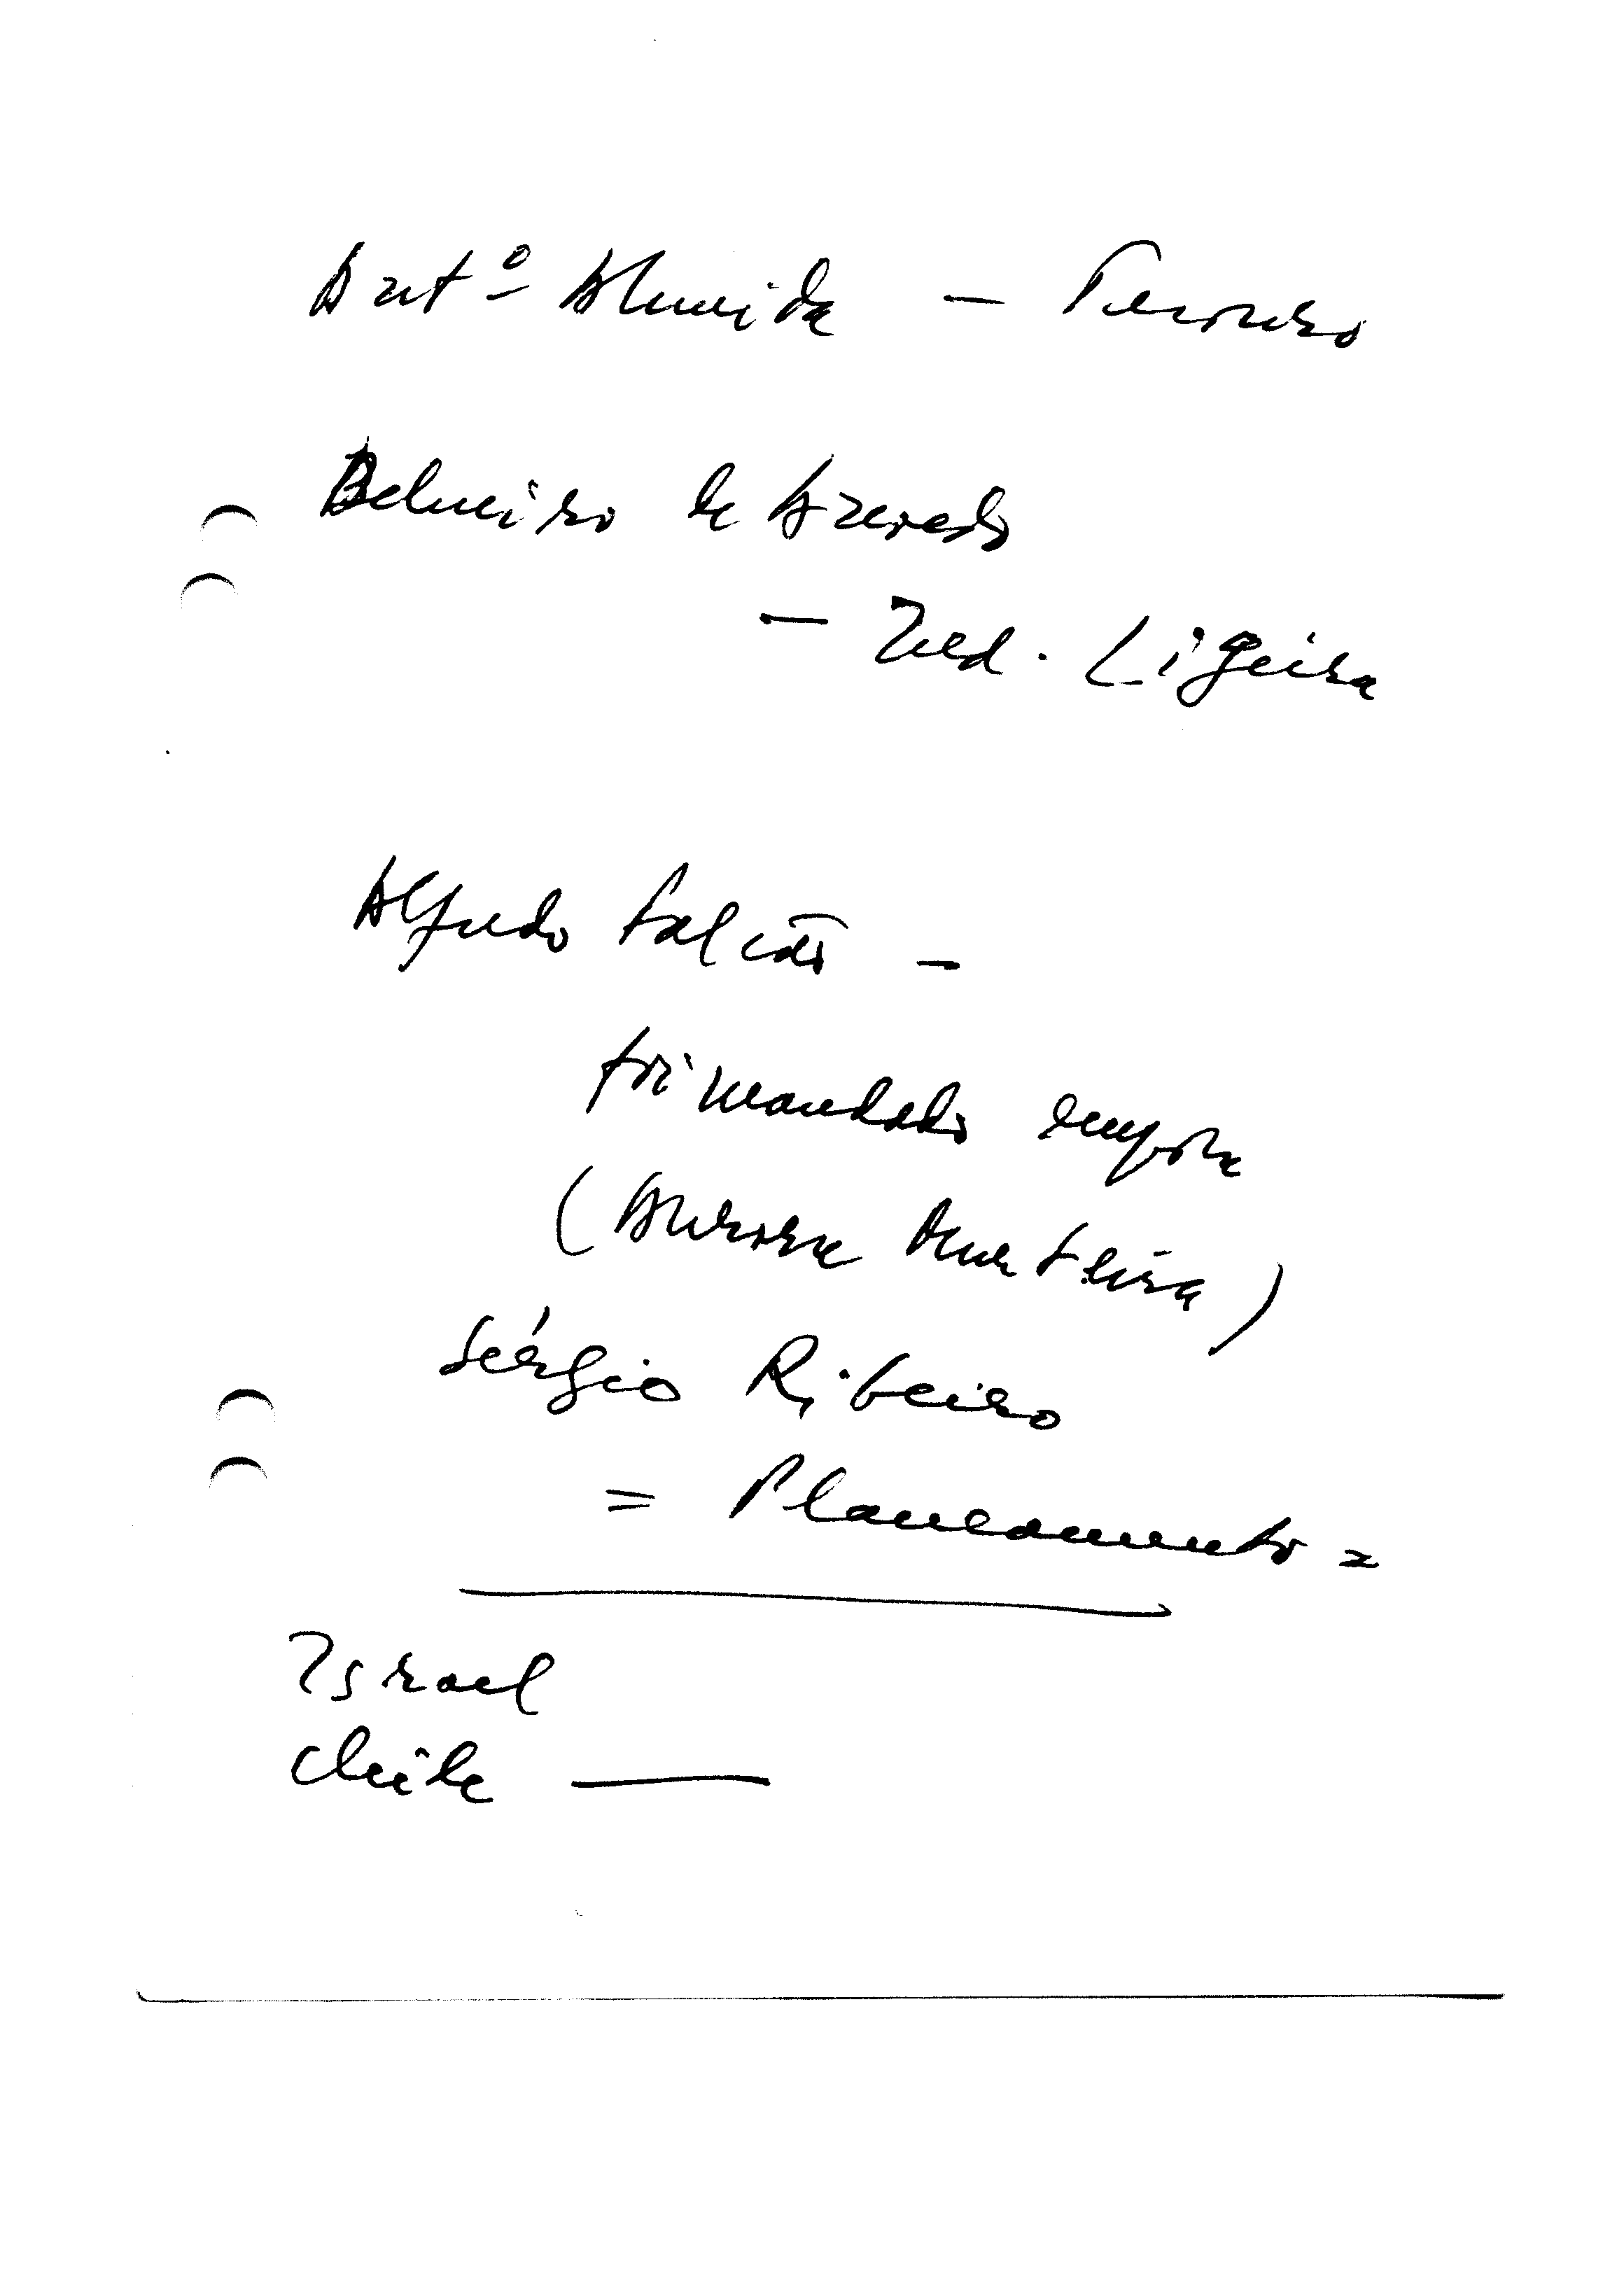 Antº Almeida — Tesouro
Belmiro de Azevedo
— Ind. Ligeira
Alfredo Falcão —
foi mandado embora
(Aurora Murteira)
Sérgio Ribeiro
= Planeamento =
Israel
Chile —